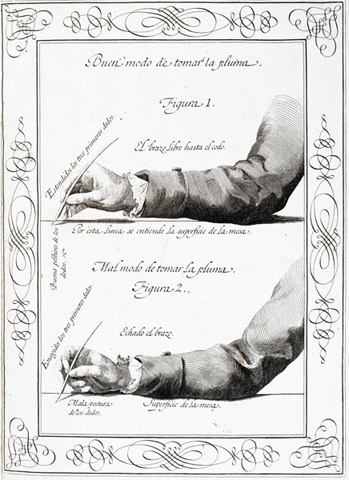 Buen modo de tomar la pluma.
Figura 1.
Estendidos los tres primeros dedos.
El brazo libre hasta el codo.
Por esta linea se entiende la superficie de la mesa.
Buena postura de los
dedos.
Mal modo de tomar la pluma.
Figura 2.
Encogidos los tres primeros dedos.
Echado el brazo.
Mala postura
de los dedos.
Superficie de la mesa.